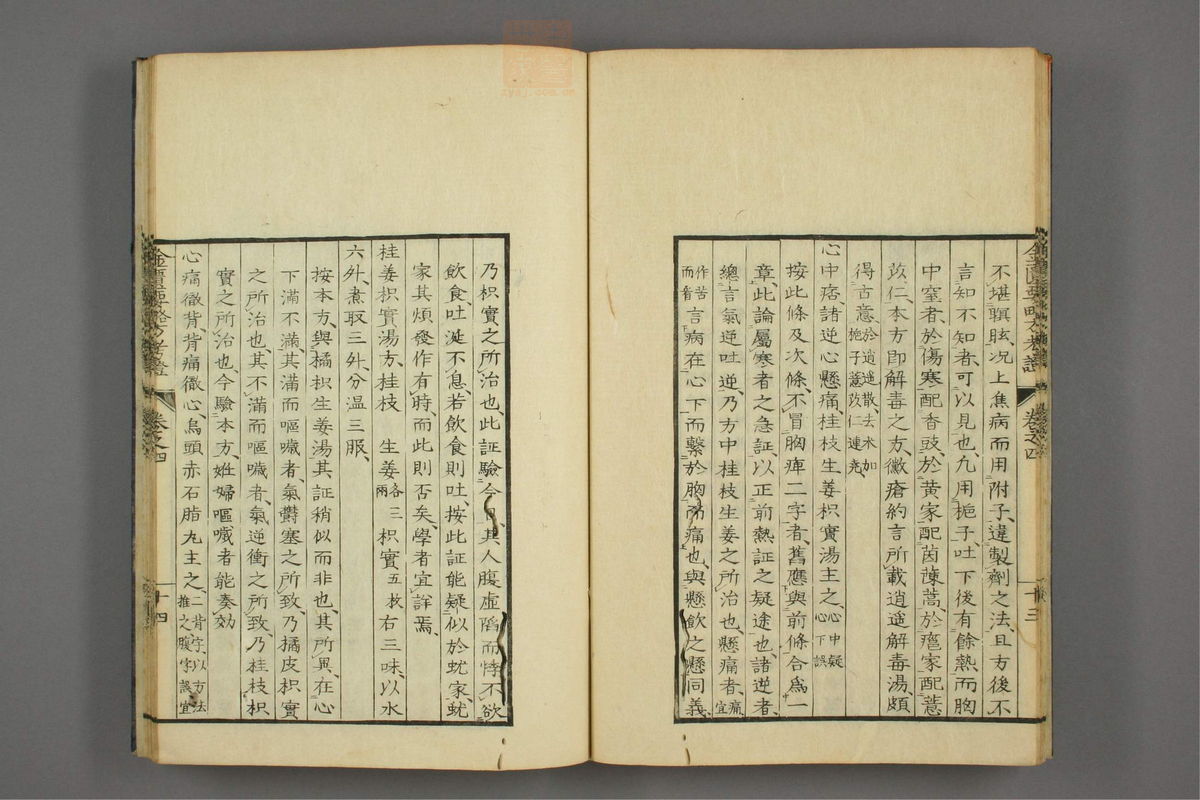 不堪瞑眩、况上焦病而用附子、違製劑之法、且方後不
言知不知者、可以見也、凢用梔子、吐下後有餘熱而胸
中窒者、於傷寒配香豉、於黄家配茵蔯蒿、於瘡家配薏
苡仁、本方即解毒之方、黴瘡約言所載逍遥解毒湯、頗
得古意、於逍遥散、去木加
梔子薏苡仁連尭、
心中痞、諸逆心懸痛、桂枝生姜枳實湯主之、心中疑
心下誤
按此條及次條、不冒胸痺二字者、舊應與前條合為一
章、此論屬寒者之急証、以正前熱証之疑途也、諸逆者、
總言氣逆吐逆、乃方中桂枝生姜之所治也、懸痛者、痛宜
作苦
而看 言病在心下而繫於胸而痛也、與懸飲之懸同義、
金匱要略方考證 卷之四 十三
乃枳實之所治也、此証驗今日、其人腹虚陷而悸、不欲
飲食、吐涎不息、若飲食則吐、按此証能疑似於蚘家、蚘
家其煩發作有時、而此則否矣、學者宜詳焉、
桂姜枳實湯方、桂枝 生姜各三
兩 枳實五枚 右三味、以水
六升、煮取三升、分温三服、
按本方、與橘枳生姜湯、其証稍似而非也、其所異、在心
下滿不滿、其滿而嘔噦者、氣鬱塞之所致、乃橘皮枳實
之所治也、其不滿而嘔噦者、氣逆衝之所致、乃桂枝枳
實之所治也、今驗本方、姙婦嘔噦者能奏効、
心痛徹背、背痛徹心、烏頭赤石脂丸主之、二背字、以方法
推之、腹字誤、宜
金匱要略方考證 卷之四 十四